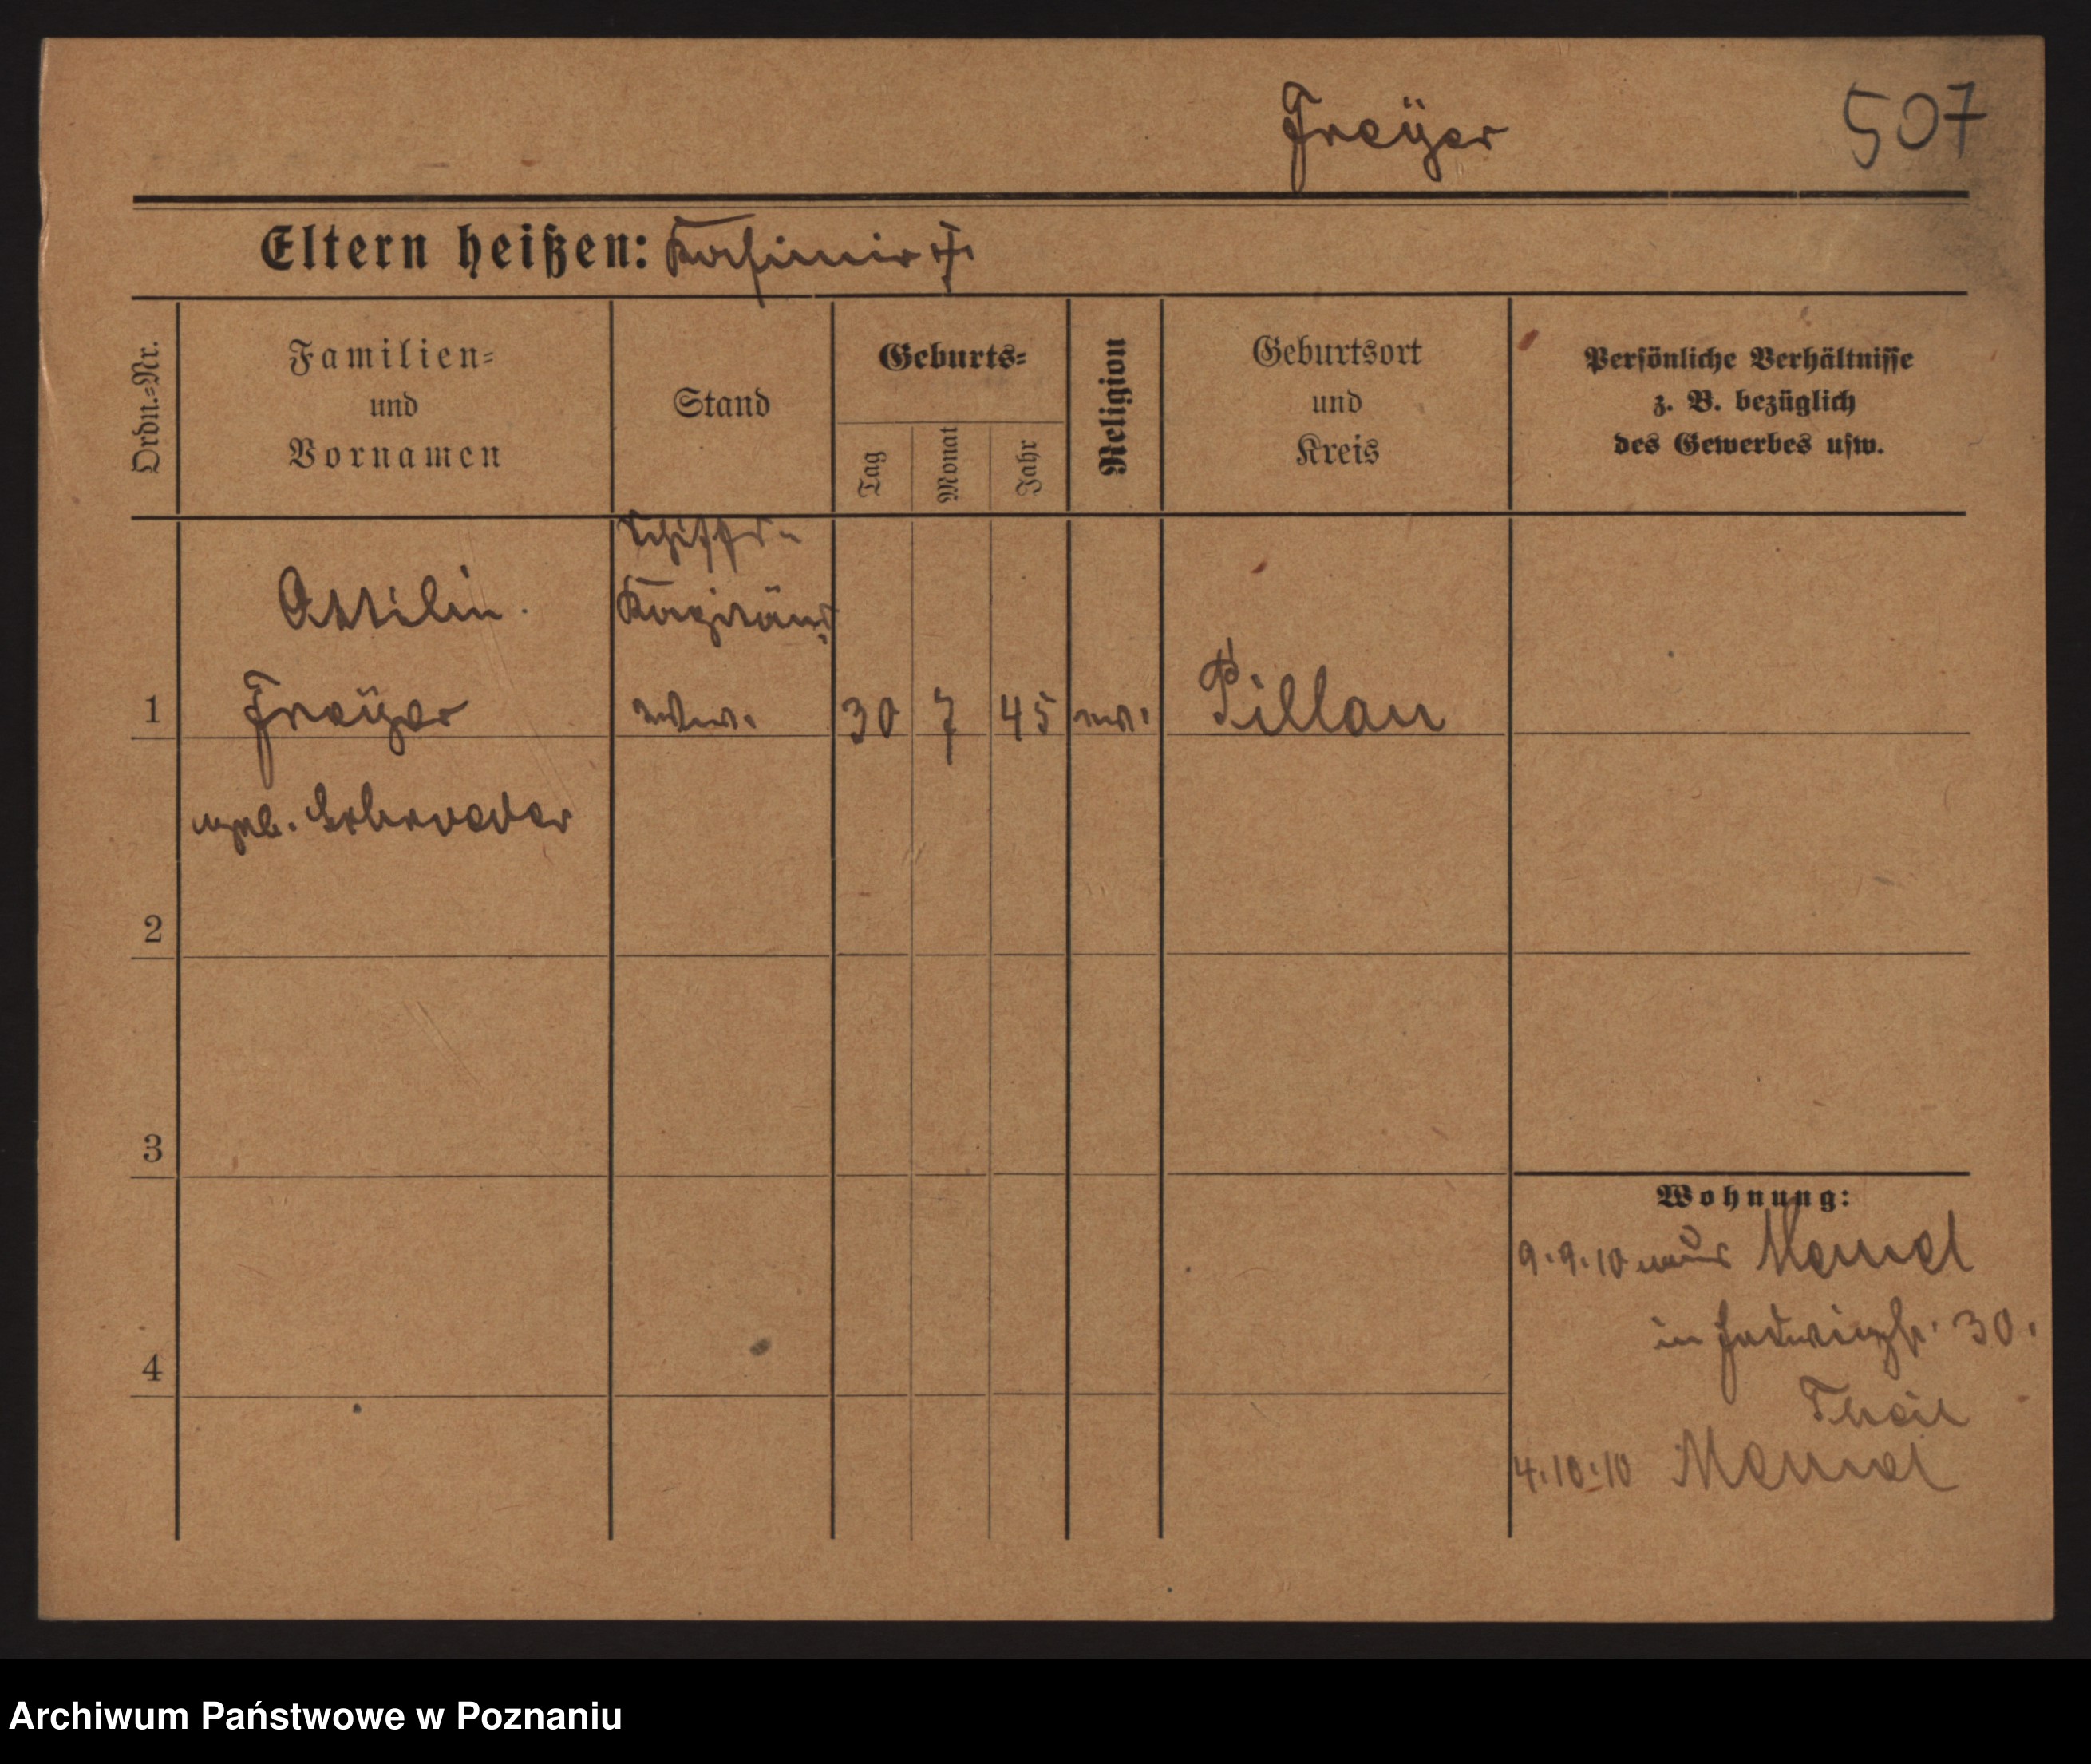 Freÿer 507
Eltern heißen: Kasimir †
Ordn.=Nr.
Familien=
und
Vornamen
Stand
Geburts=
Tag
Monat
Jahr
Religion
Geburtsort
und
Kreis
Persönliche Verhältnisse
z. B. bezüglich
des Gewerbes usw.
Schiffs-
Ottilie Kapitäns
1 Freÿer wtw. 30 7 45 ev. Pillau
geb. Schroeder
2
3
4
Wohnung:
9.9.10 aus Memel
in Hedwigstr. 30.
Theil
4.10.10 Memel
Archiwum Państwowe w Poznaniu